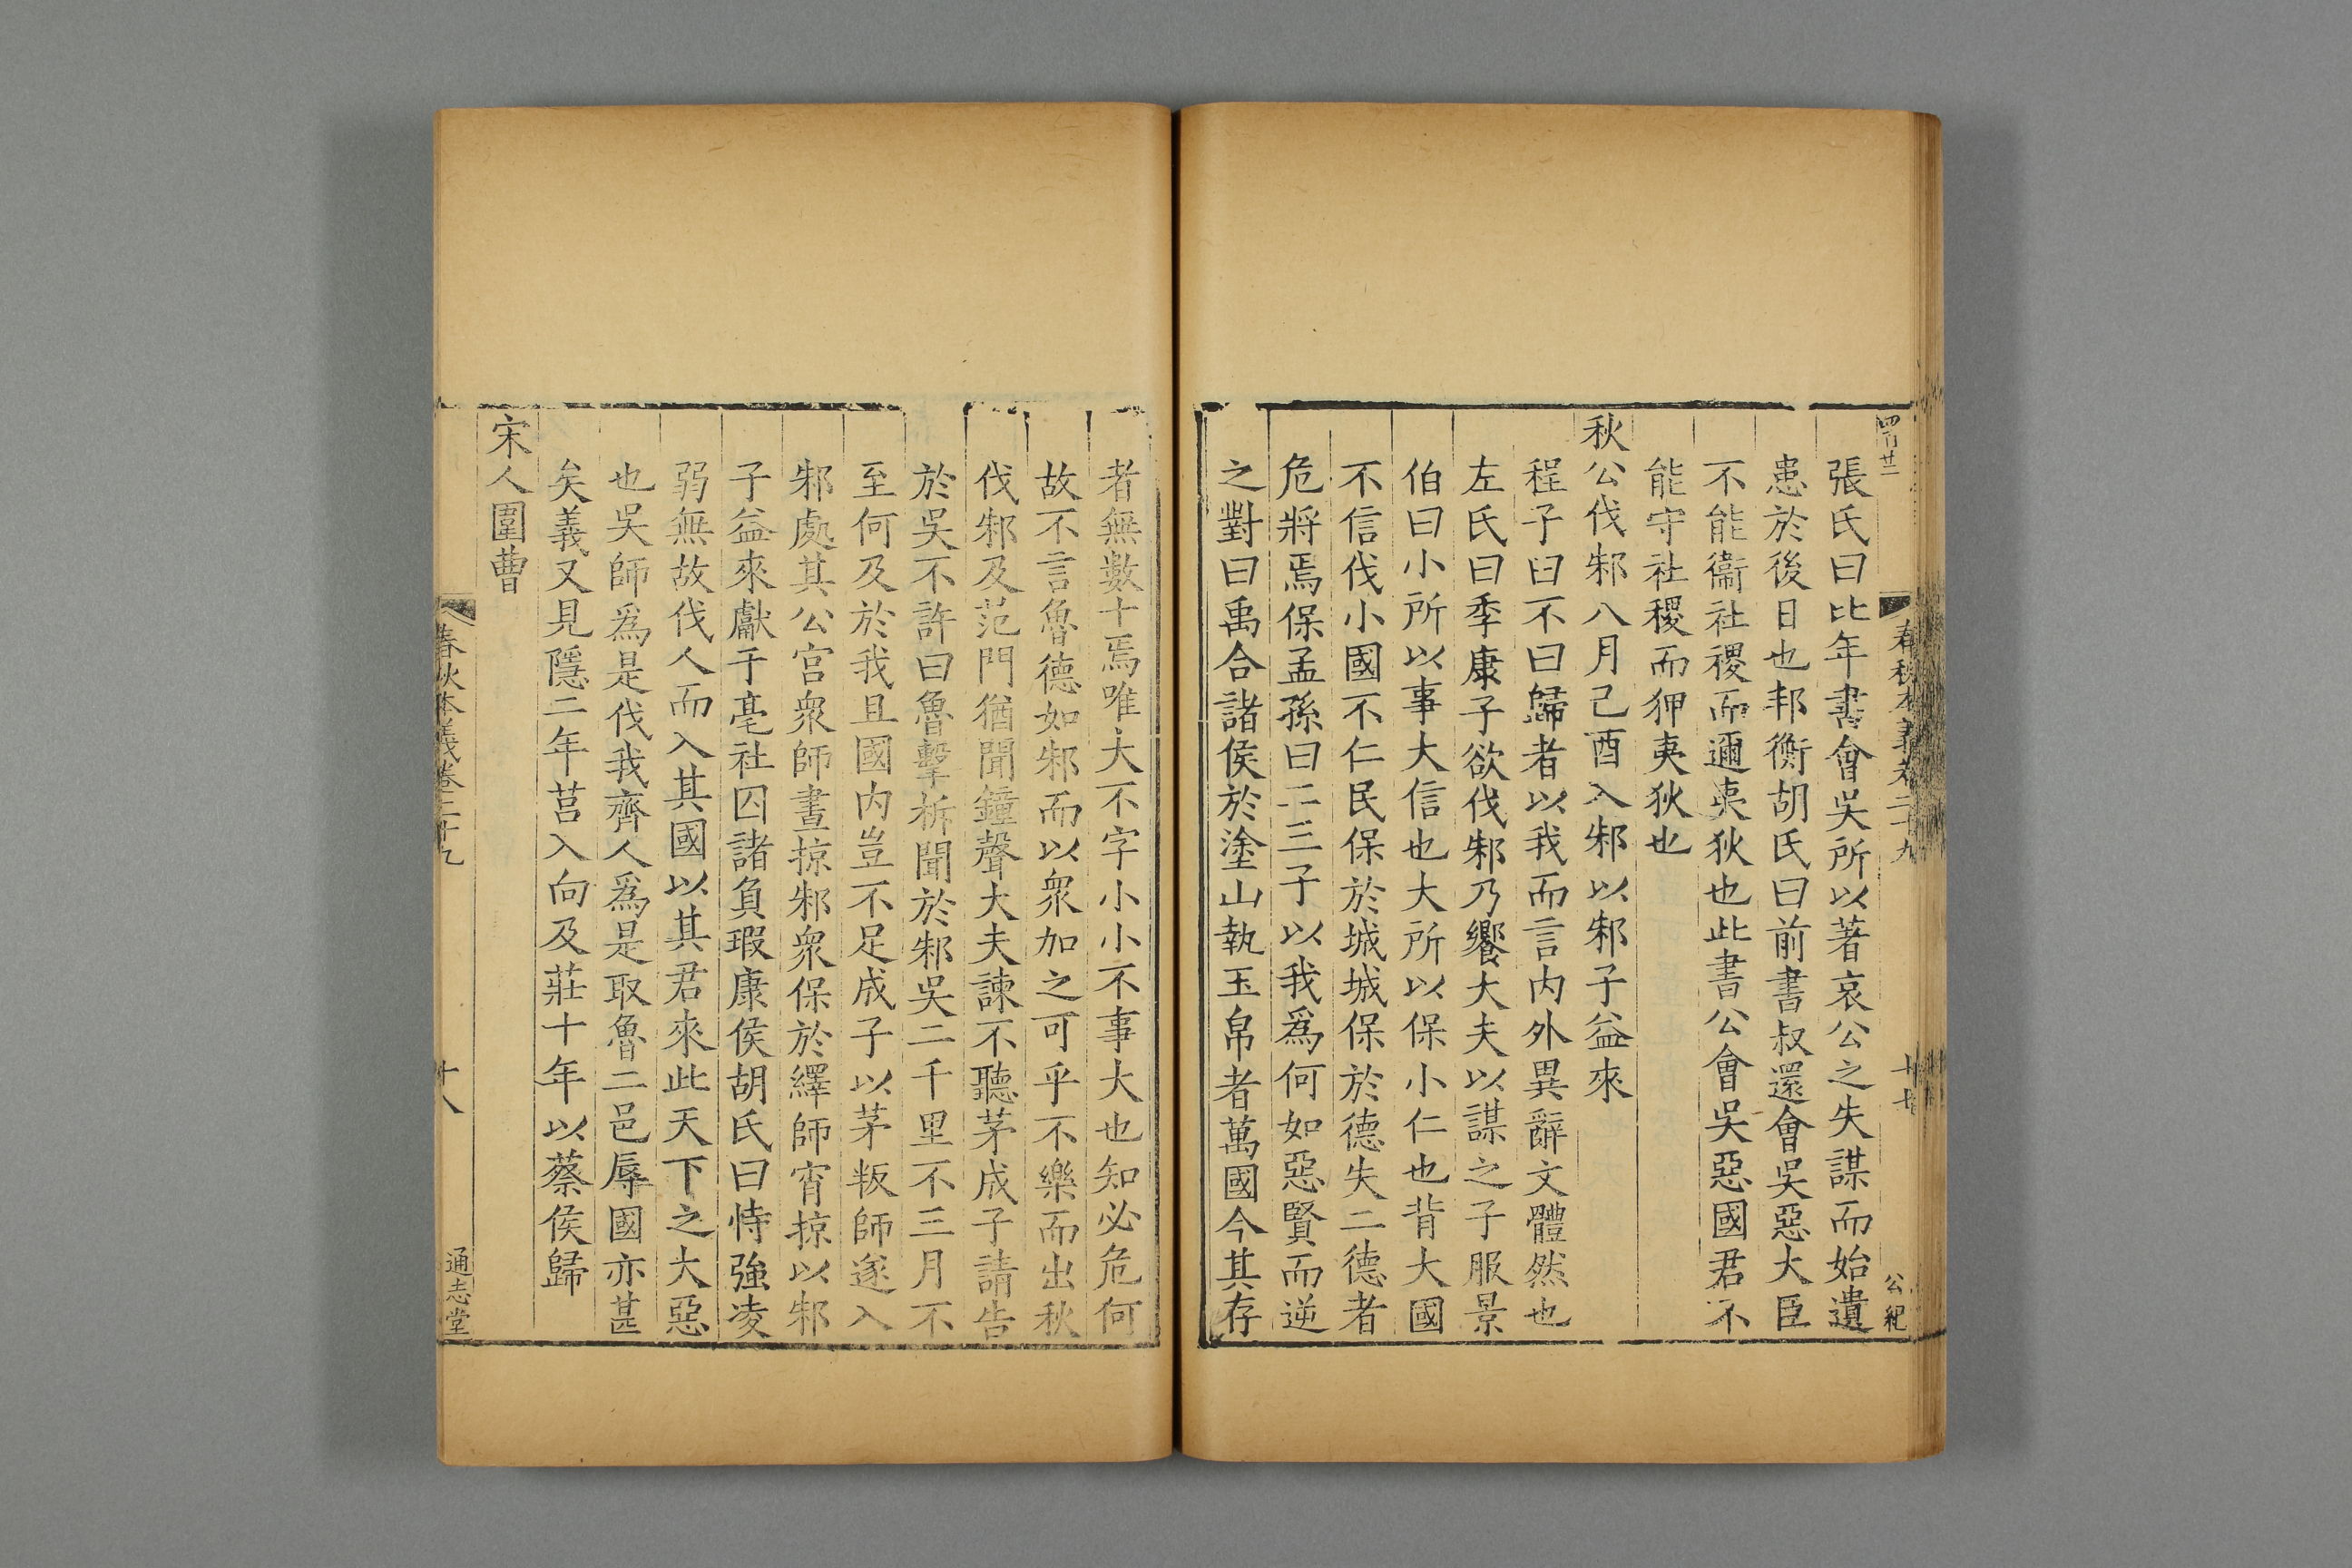 春秋本義卷二十九
十七
公紀
張氏曰比年書會吳所以著哀公之失謀而始遺
患於後日也邦衡胡氏曰前書叔還會吳惡大臣
不能衞社稷而邇夷狄也此書公會吳惡國君不
能守社稷而狎夷狄也
秋公伐邾八月己酉入邾以邾子益來
程子曰不曰歸者以我而言内外異辭文體然也
左氏曰季康子欲伐邾乃饗大夫以謀之子服景
伯曰小所以事大信也大所以保小仁也背大國
不信伐小國不仁民保於城城保於德失二德者
危將焉保孟孫曰二三子以我爲何如惡賢而逆
之對曰禹合諸侯於塗山執玉帛者萬國今其存
者無數十焉唯大不字小小不事大也知必危何
故不言魯德如邾而以衆加之可乎不樂而出秋
伐邾及范門猶聞鐘聲大夫諫不聽茅成子請告
於吳不許曰魯擊柝聞於邾吳二千里不三月不
至何及於我且國内豈不足成子以茅叛師遂入
邾處其公宫衆師晝掠邾衆保於繹師宵掠以邾
子益來獻于亳社囚諸負瑕康侯胡氏曰恃強凌
弱無故伐人而入其國以其君來此天下之大惡
也吳師爲是伐我齊人爲是取魯二邑辱國亦甚
矣義又見隱二年莒入向及莊十年以蔡侯歸
宋人圍曹
春秋本義卷二十九
十八
通志堂